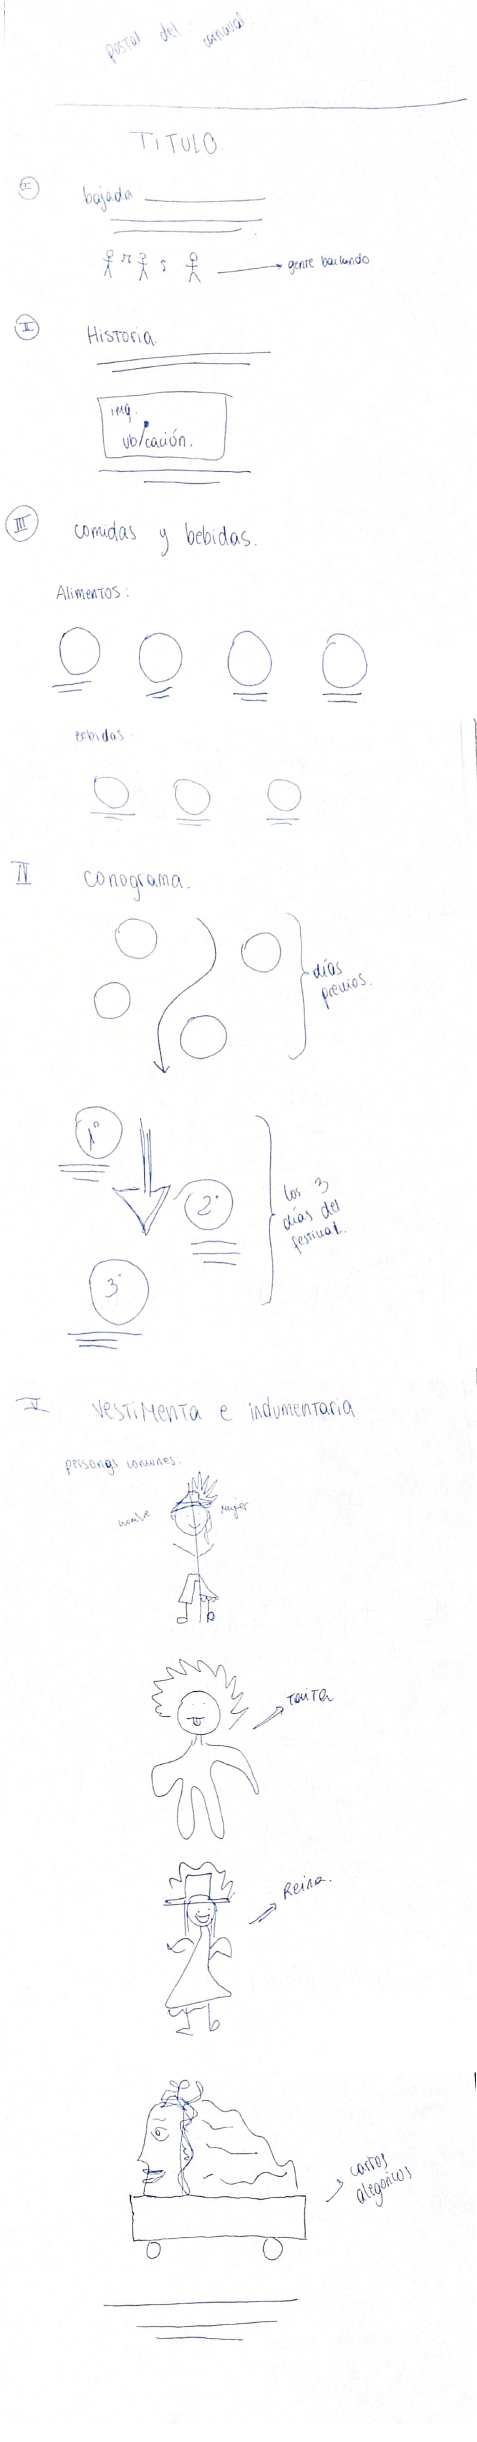 postal del carnaval.
TITULO.
I
bajada
gente bailando
II
Historia.
img.
ubicación.
III
comidas y bebidas.
Alimentos:
bebidas
IV
conograma.
días
previos.
1°
2°
los 3
días del
festival.
3°
V
vestimenta e indumentaria
personas comunes.
hombre
mujer
Taita
Reina.
carros
alegoricos